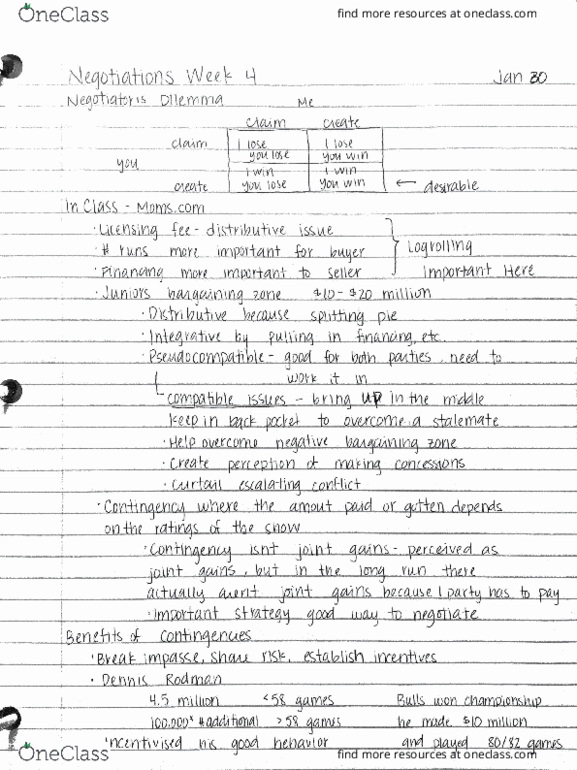 OneClass
find more resources at oneclass.com
Negotiations Week 4 Jan 30
Negotiator's Dilemma Me
claim create
claim I lose I lose
you lose you win
you
I win I win
create you lose you win ← desirable
In Class - Moms.com
· Licensing fee - distributive issue
· # runs more important for buyer Logrolling
· Financing more important to seller Important Here
· Juniors bargaining zone $10 - $20 million
· Distributive because splitting pie
· Integrative by pulling in financing, etc.
· Pseudocompatible - good for both parties, need to
work it in
compatible issues - bring up in the middle
keep in back pocket to overcome a stalemate
· Help overcome negative bargaining zone
· Create perception of making concessions
· Curtail escalating conflict
· Contingency where the amout paid or gotten depends
on the ratings of the show
· Contingency isnt joint gains - perceived as
joint gains, but in the long run there
actually arent joint gains because 1 party has to pay
· Important strategy good way to negotiate
Benefits of Contingencies
· Break impasse, share risk, establish incentives
· Dennis Rodman
4.5 million <58 games Bulls won championship
100,000 # additional >58 games he made $10 million
incentivised his good behavior and played 80/82 games
OneClass
find more resources at oneclass.com